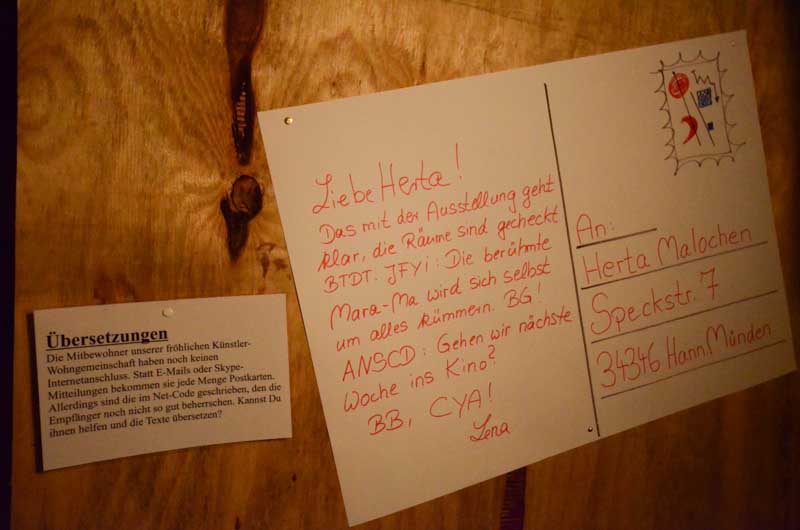 Übersetzungen
Die Mitbewohner unserer fröhlichen Künstler-
Wohngemeinschaft haben noch keinen
Internetanschluss. Statt E-Mails oder Skype-
Mitteilungen bekommen sie jede Menge Postkarten.
Allerdings sind die im Net-Code geschrieben, den die
Empfänger noch nicht so gut beherrschen. Kannst Du
ihnen helfen und die Texte übersetzen?
Liebe Herta!
Das mit der Ausstellung geht
klar, die Räume sind gecheckt
BTDT. JFYi: Die berühmte
Mara-Ma wird sich selbst
um alles kümmern. BG!
ANSCD: Gehen wir nächste
Woche ins Kino?
BB, CYA!
Lena
An:
Herta Malochen
Speckstr. 7
34346 Hann. Münden